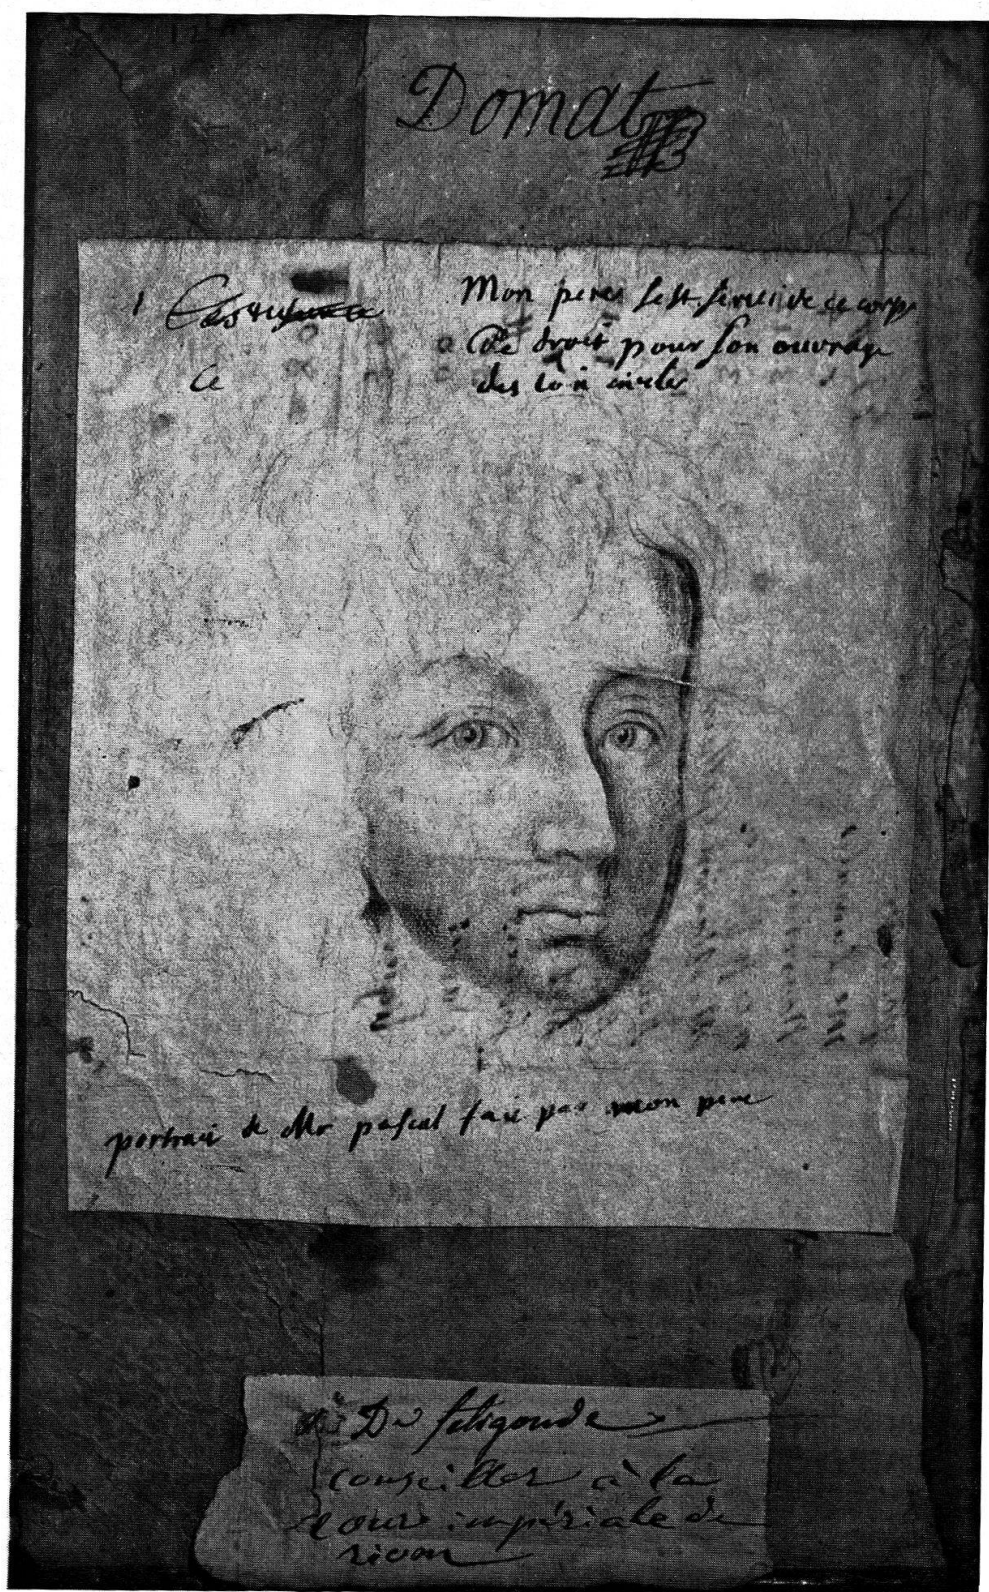 Domat
Mon pere s'est servi de ce corps
De droit pour son ouvrage
des loix civiles
Ce
portrait de Mr pascal fait par mon pere
De feligonde
conseiller à la
cour impériale de
riom